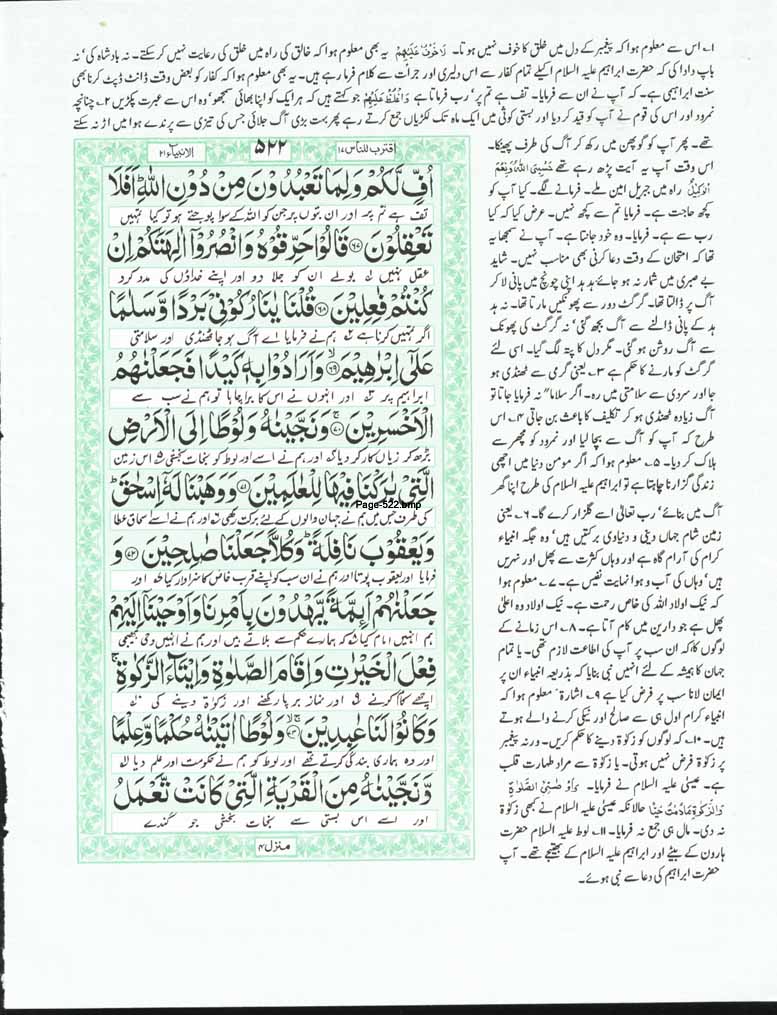 ۱؎ اس سے معلوم ہوا کہ پیغمبر کے دل میں خلق کا خوف نہیں ہوتا۔ لَاخَوْفٌ عَلَيْهِمْ یہ بھی معلوم ہوا کہ خالق کی راہ میں خلق کی رعایت نہیں کرسکتے۔ نہ بادشاہ کی' نہ
باپ دادا کی کہ حضرت ابراہیم علیہ السلام اکیلے تمام کفار سے اس دلیری اور جرأت سے کلام فرما رہے ہیں۔ یہ بھی معلوم ہوا کہ کفار کو بعض وقت ڈانٹ ڈپٹ کرنا بھی
سنت ابراہیمی ہے۔ کہ آپ نے ان سے فرمایا۔ تف ہے تم پر' رب فرماتا ہے وَاغْلُظْ عَلَيْهِمْ جو کہتے ہیں کہ ہر ایک کو اپنا بھائی سمجھو' وہ اس سے عبرت پکڑیں ۲؎ چنانچہ
نمرود اور اس کی قوم نے آپ کو قید کر دیا اور بستی کوثی میں ایک ماہ تک لکڑیاں جمع کرتے رہے پھر بہت بڑی آگ جلائی جس کی تیزی سے پرندے ہوا میں اڑ نہ سکتے
تھے۔ پھر آپ کو گوپھن میں رکھ کر آگ کی طرف پھینکا۔
اس وقت آپ یہ آیت پڑھ رہے تھے حَسْبِيَ اللّٰهُ وَنِعْمَ
الْوَكِيْلُ راہ میں جبریل امین ملے۔ فرمانے لگے۔ کیا آپ کو
کچھ حاجت ہے۔ فرمایا تم سے کچھ نہیں۔ عرض کیا کہ کیا
رب سے ہے۔ فرمایا۔ وہ خود جانتا ہے۔ آپ نے سمجھا یہ
تھا کہ امتحان کے وقت دعا کرنی بھی مناسب نہیں۔ شاید
بے صبری میں شمار نہ ہو جائے ہد ہد اپنی چونچ میں پانی لا کر
آگ پر ڈالتا تھا۔ گرگٹ دور سے پھونکیں مارتا تھا۔ نہ ہد
ہد کے پانی ڈالنے سے آگ بجھ گئی' نہ گرگٹ کی پھونک
سے آگ روشن ہو گئی۔ مگر دل کا پتہ لگ گیا۔ اسی لئے
گرگٹ کو مارنے کا حکم ہے ۳؎ یعنی گرمی سے ٹھنڈی ہو
جا اور سردی سے سلامتی میں رہ۔ اگر سلاما" نہ فرمایا جاتا تو
آگ زیادہ ٹھنڈی ہو کر تکلیف کا باعث بن جاتی ۴؎ اس
طرح کہ آپ کو آگ سے بچا لیا اور نمرود کو مچھر سے
ہلاک کر دیا۔ ۵؎ معلوم ہوا کہ اگر مومن دنیا میں اچھی
زندگی گزارنا چاہتا ہے تو ابراہیم علیہ السلام کی طرح اپنا گھر
آگ میں بنائے' رب تعالی اسے گلزار کرے گا۔ ۶؎ یعنی
زمین شام جہاں دینی و دنیاوی برکتیں ہیں' وہ جگہ انبیاء
کرام کی آرام گاہ ہے اور وہاں کثرت سے پھل اور نہریں
ہیں' وہاں کی آب و ہوا نہایت نفیس ہے۔ ۷؎ معلوم ہوا
کہ نیک اولاد اللہ کی خاص رحمت ہے۔ نیک اولاد وہ اعلیٰ
پھل ہے جو دارین میں کام آتا ہے۔ ۸؎ اس زمانے کے
لوگوں کا کہ ان سب پر آپ کی اطاعت لازم تھی۔ یا تمام
جہان کا ہمیشہ کے لئے انہیں نبی بنایا کہ بذریعہ انبیاء ان پر
ایمان لانا سب پر فرض کیا ہے ۹؎ اشارۃ" معلوم ہوا کہ
انبیاء کرام اول ہی سے صالح اور نیکی کرنے والے ہوتے
ہیں۔ ۱۰؎ کہ لوگوں کو زکوٰۃ دینے کا حکم کریں۔ ورنہ پیغمبر
پر زکوٰۃ فرض نہیں ہوتی۔ یا زکوٰۃ سے مراد طہارت قلب
ہے۔ عیسیٰ علیہ السلام نے فرمایا۔ وَاَوْصٰنِيْ بِالصَّلٰوةِ
وَالزَّكٰوةِ مَادُمْتُ حَيًّا حالانکہ عیسیٰ علیہ السلام نے کبھی زکوٰۃ
نہ دی۔ مال ہی جمع نہ فرمایا۔ ۱۱؎ لوط علیہ السلام حضرت
ہارون کے بیٹے اور ابراہیم علیہ السلام کے بھتیجے تھے۔ آپ
حضرت ابراہیم کی دعا سے نبی ہوئے۔
اقترب للناس ۱۷ ۵۲۲ الانبیاء ۲۱
اُفٍّ لَّكُمْ وَلِمَا تَعْبُدُوْنَ مِنْ دُوْنِ اللّٰهِ ؕ اَفَلَا
تف ہے تم پر اور ان بتوں پر جن کو اللہ کے سوا پوجتے ہو تو کیا تمہیں
تَعْقِلُوْنَ ﴿۶۷﴾ قَالُوْا حَرِّقُوْهُ وَانْصُرُوْۤا اٰلِهَتَكُمْ اِنْ
عقل نہیں بولے ان کو جلا دو اور اپنے خداؤں کی مدد کرو
كُنْتُمْ فٰعِلِيْنَ ﴿۶۸﴾ قُلْنَا يٰنَارُ كُوْنِيْ بَرْدًا وَّسَلٰمًا
اگر تمہیں کرنا ہے ہم نے فرمایا اے آگ ہو جا ٹھنڈی اور سلامتی
عَلٰۤى اِبْرٰهِيْمَ ﴿۶۹﴾ وَاَرَادُوْا بِهٖ كَيْدًا فَجَعَلْنٰهُمُ
ابراہیم پر اور انہوں نے اس کا برا چاہا تو ہم نے سب سے
الْاَخْسَرِيْنَ ﴿۷۰﴾ وَنَجَّيْنٰهُ وَلُوْطًا اِلَى الْاَرْضِ
بڑھ کر زیاں کار کر دیا اور ہم نے اسے اور لوط کو نجات بخشی اس زمین
الَّتِيْ بٰرَكْنَا فِيْهَا لِلْعٰلَمِيْنَ ﴿۷۱﴾ وَوَهَبْنَا لَهٗۤ اِسْحٰقَ ؕ
Page-522.bmp
کی طرف جس میں ہم نے جہان والوں کے لئے برکت رکھی اور ہم نے اسے اسحاق عطا
وَيَعْقُوْبَ نَافِلَةً ؕ وَكُلًّا جَعَلْنَا صٰلِحِيْنَ ﴿۷۲﴾ وَ
فرمایا اور یعقوب پوتا اور ہم نے ان سب کو اپنے قرب خاص کا سزاوار کیا اور
جَعَلْنٰهُمْ اَىِٕمَّةً يَّهْدُوْنَ بِاَمْرِنَا وَاَوْحَيْنَاۤ اِلَيْهِمْ
ہم انہیں امام کیا کہ ہمارے حکم سے بلاتے ہیں اور ہم نے انہیں وحی بھیجی
فِعْلَ الْخَيْرٰتِ وَاِقَامَ الصَّلٰوةِ وَاِيْتَآءَ الزَّكٰوةِ ۚ
اچھے کام کرنے اور نماز برپا رکھنے اور زکوٰۃ دینے کی
وَكَانُوْا لَنَا عٰبِدِيْنَ ﴿۷۳﴾ وَلُوْطًا اٰتَيْنٰهُ حُكْمًا وَّعِلْمًا
اور وہ ہماری بندگی کرتے تھے اور لوط کو ہم نے حکومت اور علم دیا
وَّنَجَّيْنٰهُ مِنَ الْقَرْيَةِ الَّتِيْ كَانَتْ تَّعْمَلُ
اور اسے اس بستی سے نجات بخشی جو گندے
منزل ۴